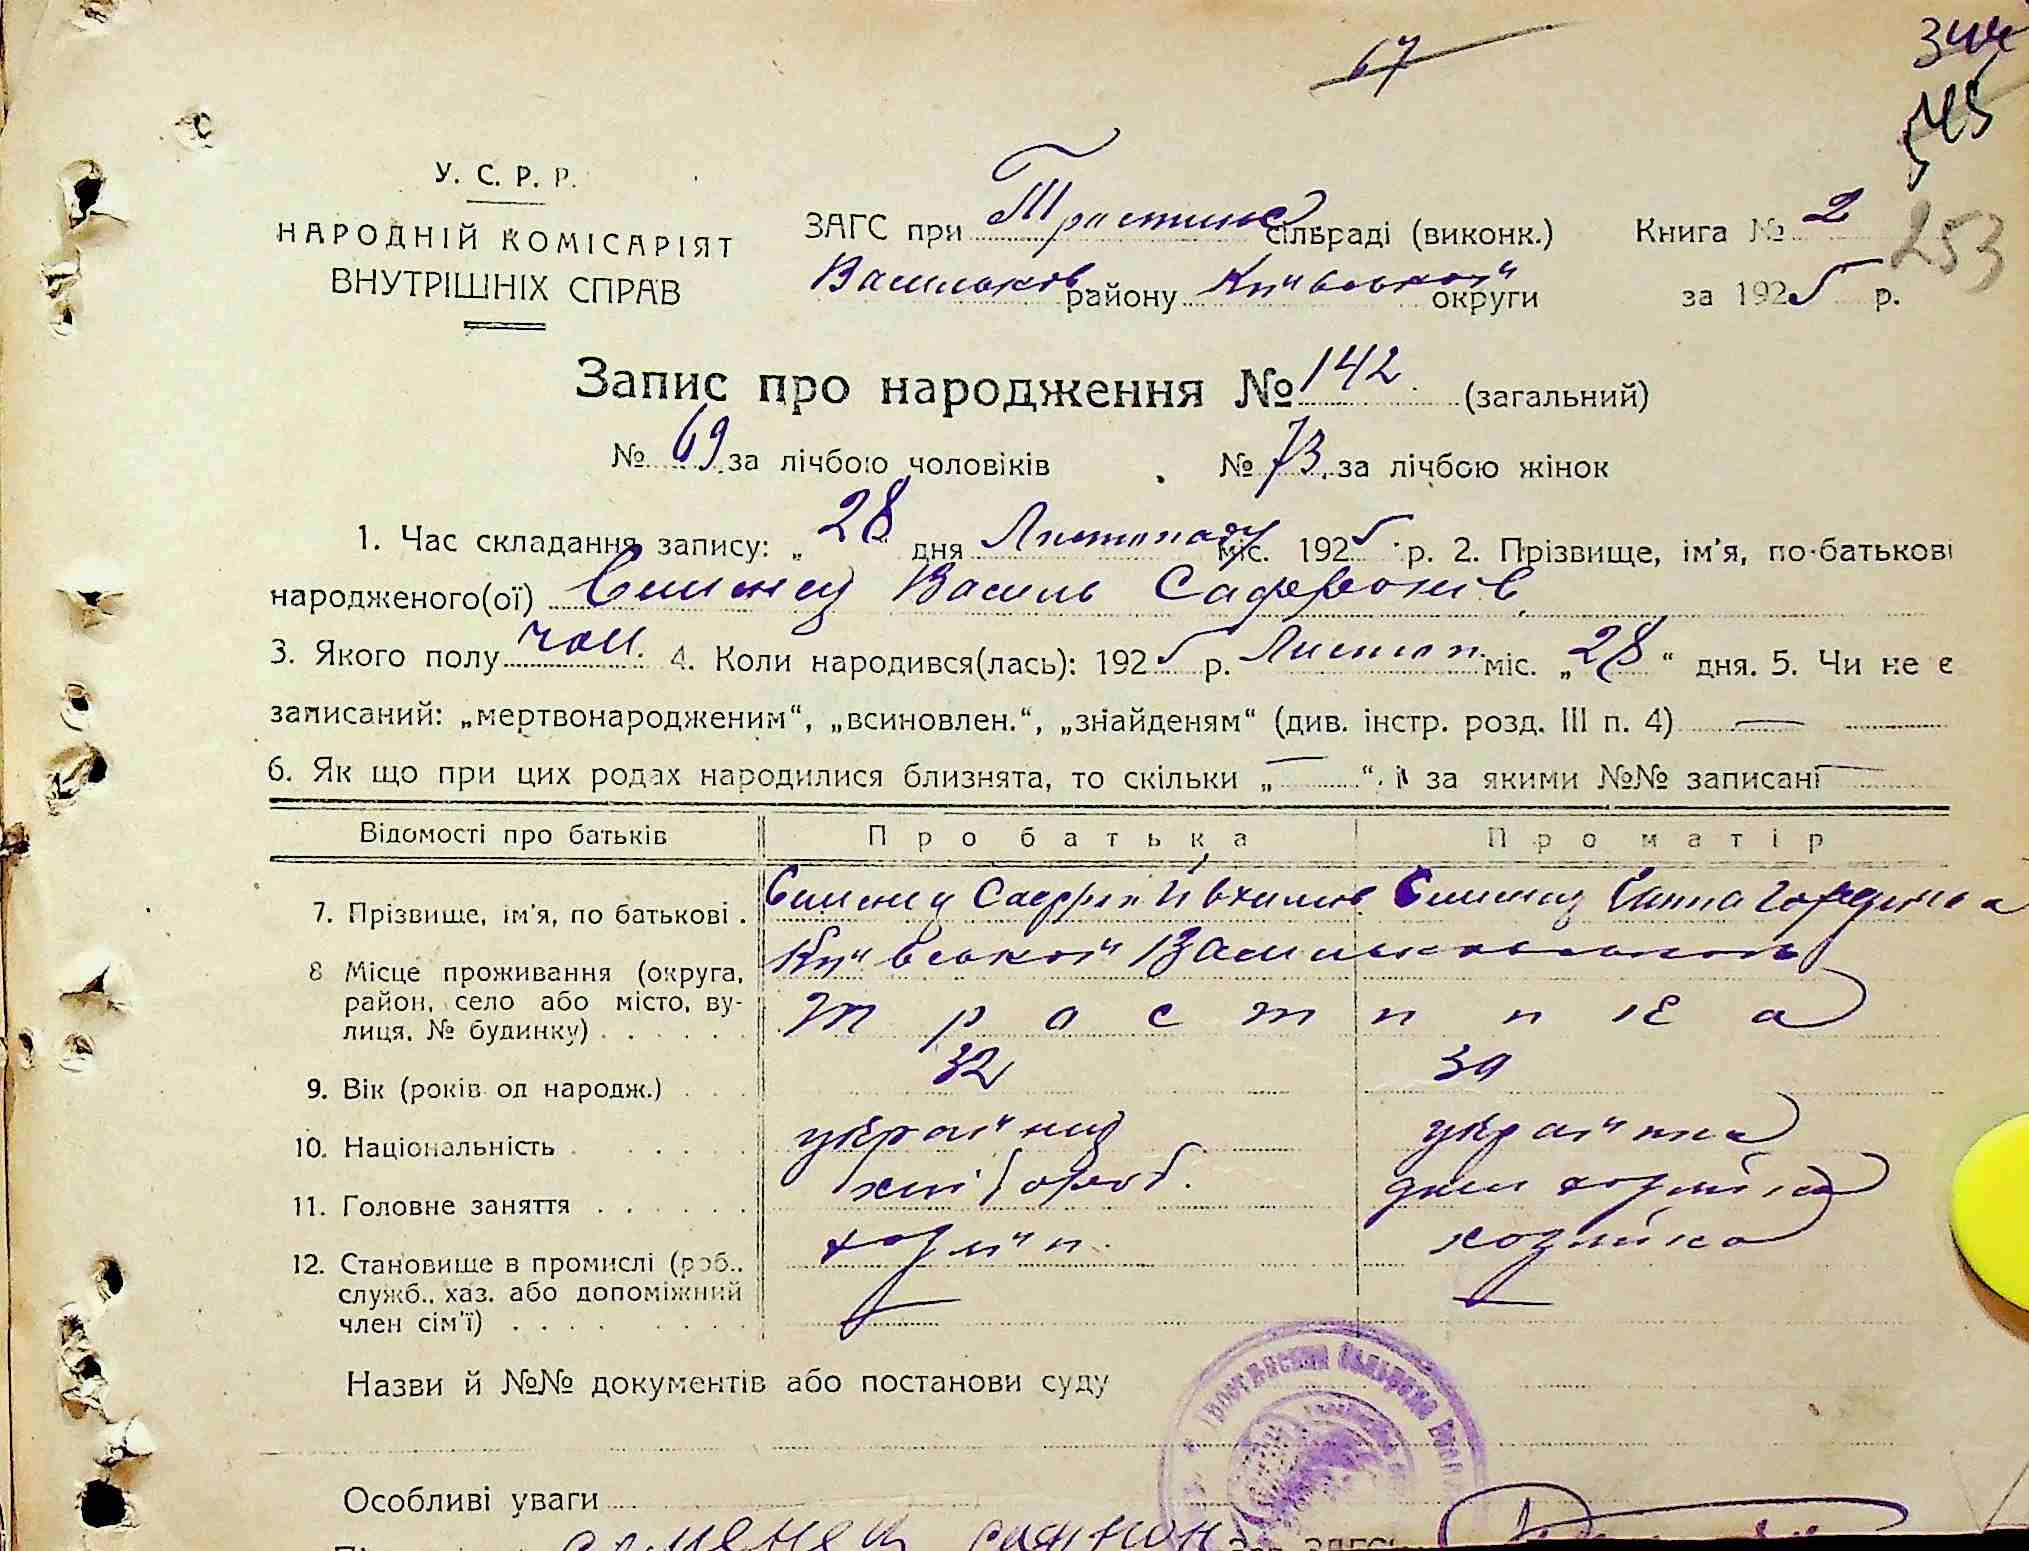 67
344
545
253
У. С. Р. Р.
НАРОДНІЙ КОМІСАРІЯТ
ВНУТРІШНІХ СПРАВ
ЗАГС при Тростинс сільраді (виконк.) Книга № 2
Васильків району Київської округи за 1925 р.
Запис про народження № 142 (загальний)
№ 69 за лічбою чоловіків № 73 за лічбою жінок
1. Час складання запису: „28“ дня Листопаду міс. 1925 р. 2. Прізвище, ім'я, по-батькові
народженого(ої) Василь
3. Якого полу чол. 4. Коли народився(лась): 1925 р. Листоп. міс. „28“ дня. 5. Чи не є
записаний: „мертвонародженим“, „всиновлен.“, „знайденям“ (див. інстр. розд. III п. 4) —
6. Як що при цих родах народилися близнята, то скільки „—“, і за якими №№ записані —
Відомості про батьків Про батька Про матір
7. Прізвище, ім'я, по батькові
8 Місце проживання (округа, Київської
район, село або місто, ву- Тростинка
лиця, № будинку)
9. Вік (років од народж.) 32
10. Національність україниц українка
11. Головне заняття хлібороб. дом хозяйка
12. Становище в промислі (роб., хозяїн. хозяйка
служб., хаз. або допоміжний
член сім'ї)
Назви й №№ документів або постанови суду
Особливі уваги